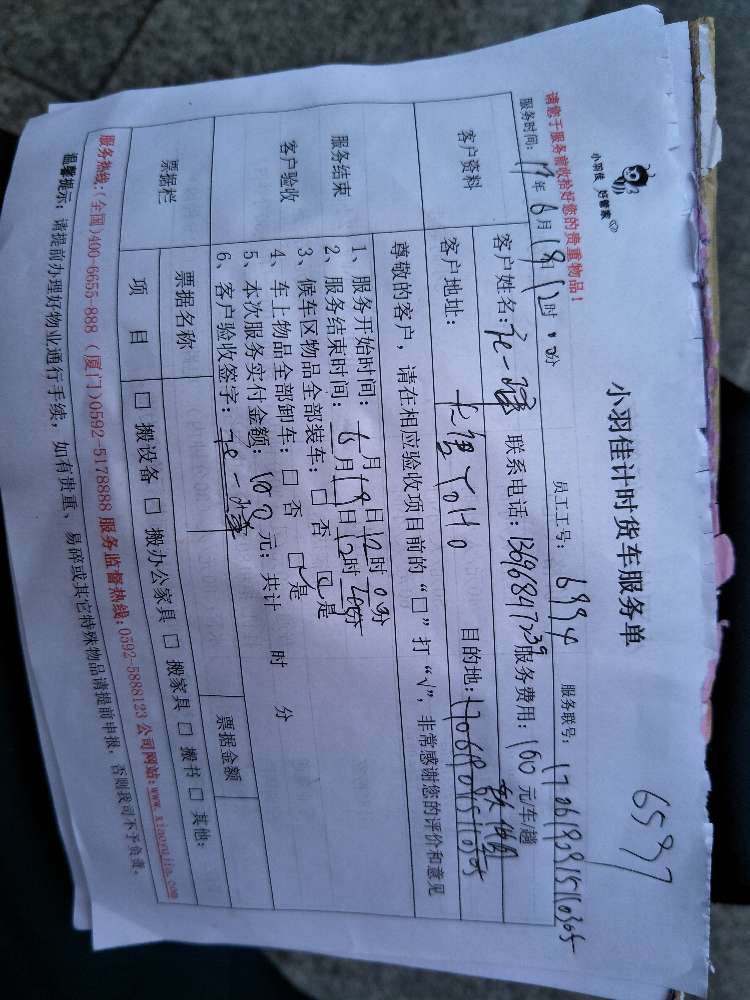 6597
小羽佳 好管家
小羽佳计时货车服务单
请您于服务前收拾好您的贵重物品！
服务时间：17年6月19日12时00分 员工工号：6994 服务联号：
客户资料 客户姓名： 联系电话：13696847239 服务费用：100元/车/趟
客户地址： 目的地：
服务结束 客户验收
尊敬的客户，请在相应验收项目前的“□”打“√”，非常感谢您的评价和意见
1、服务开始时间：6月19日12时0分
2、服务结束时间：6月19日12时20分
3、候车区物品全部装车：□否 □是
4、车上物品全部卸车：□否 □是
5、本次服务实付金额：100元；共计 时 分
6、客户验收签字：
票据栏 票据名称 票据金额
项目 □搬设备 □搬办公家具 □搬家具 □搬书 □其他：
服务热线：(全国)400-6655-888（厦门)0592-5178888 服务监督热线：0592-5888123 公司网站：www.xiaoyujia.com
温馨提示：请提前办理好物业通行手续，如有贵重、易碎或其它特殊物品请提前申报，否则我司不予负责。